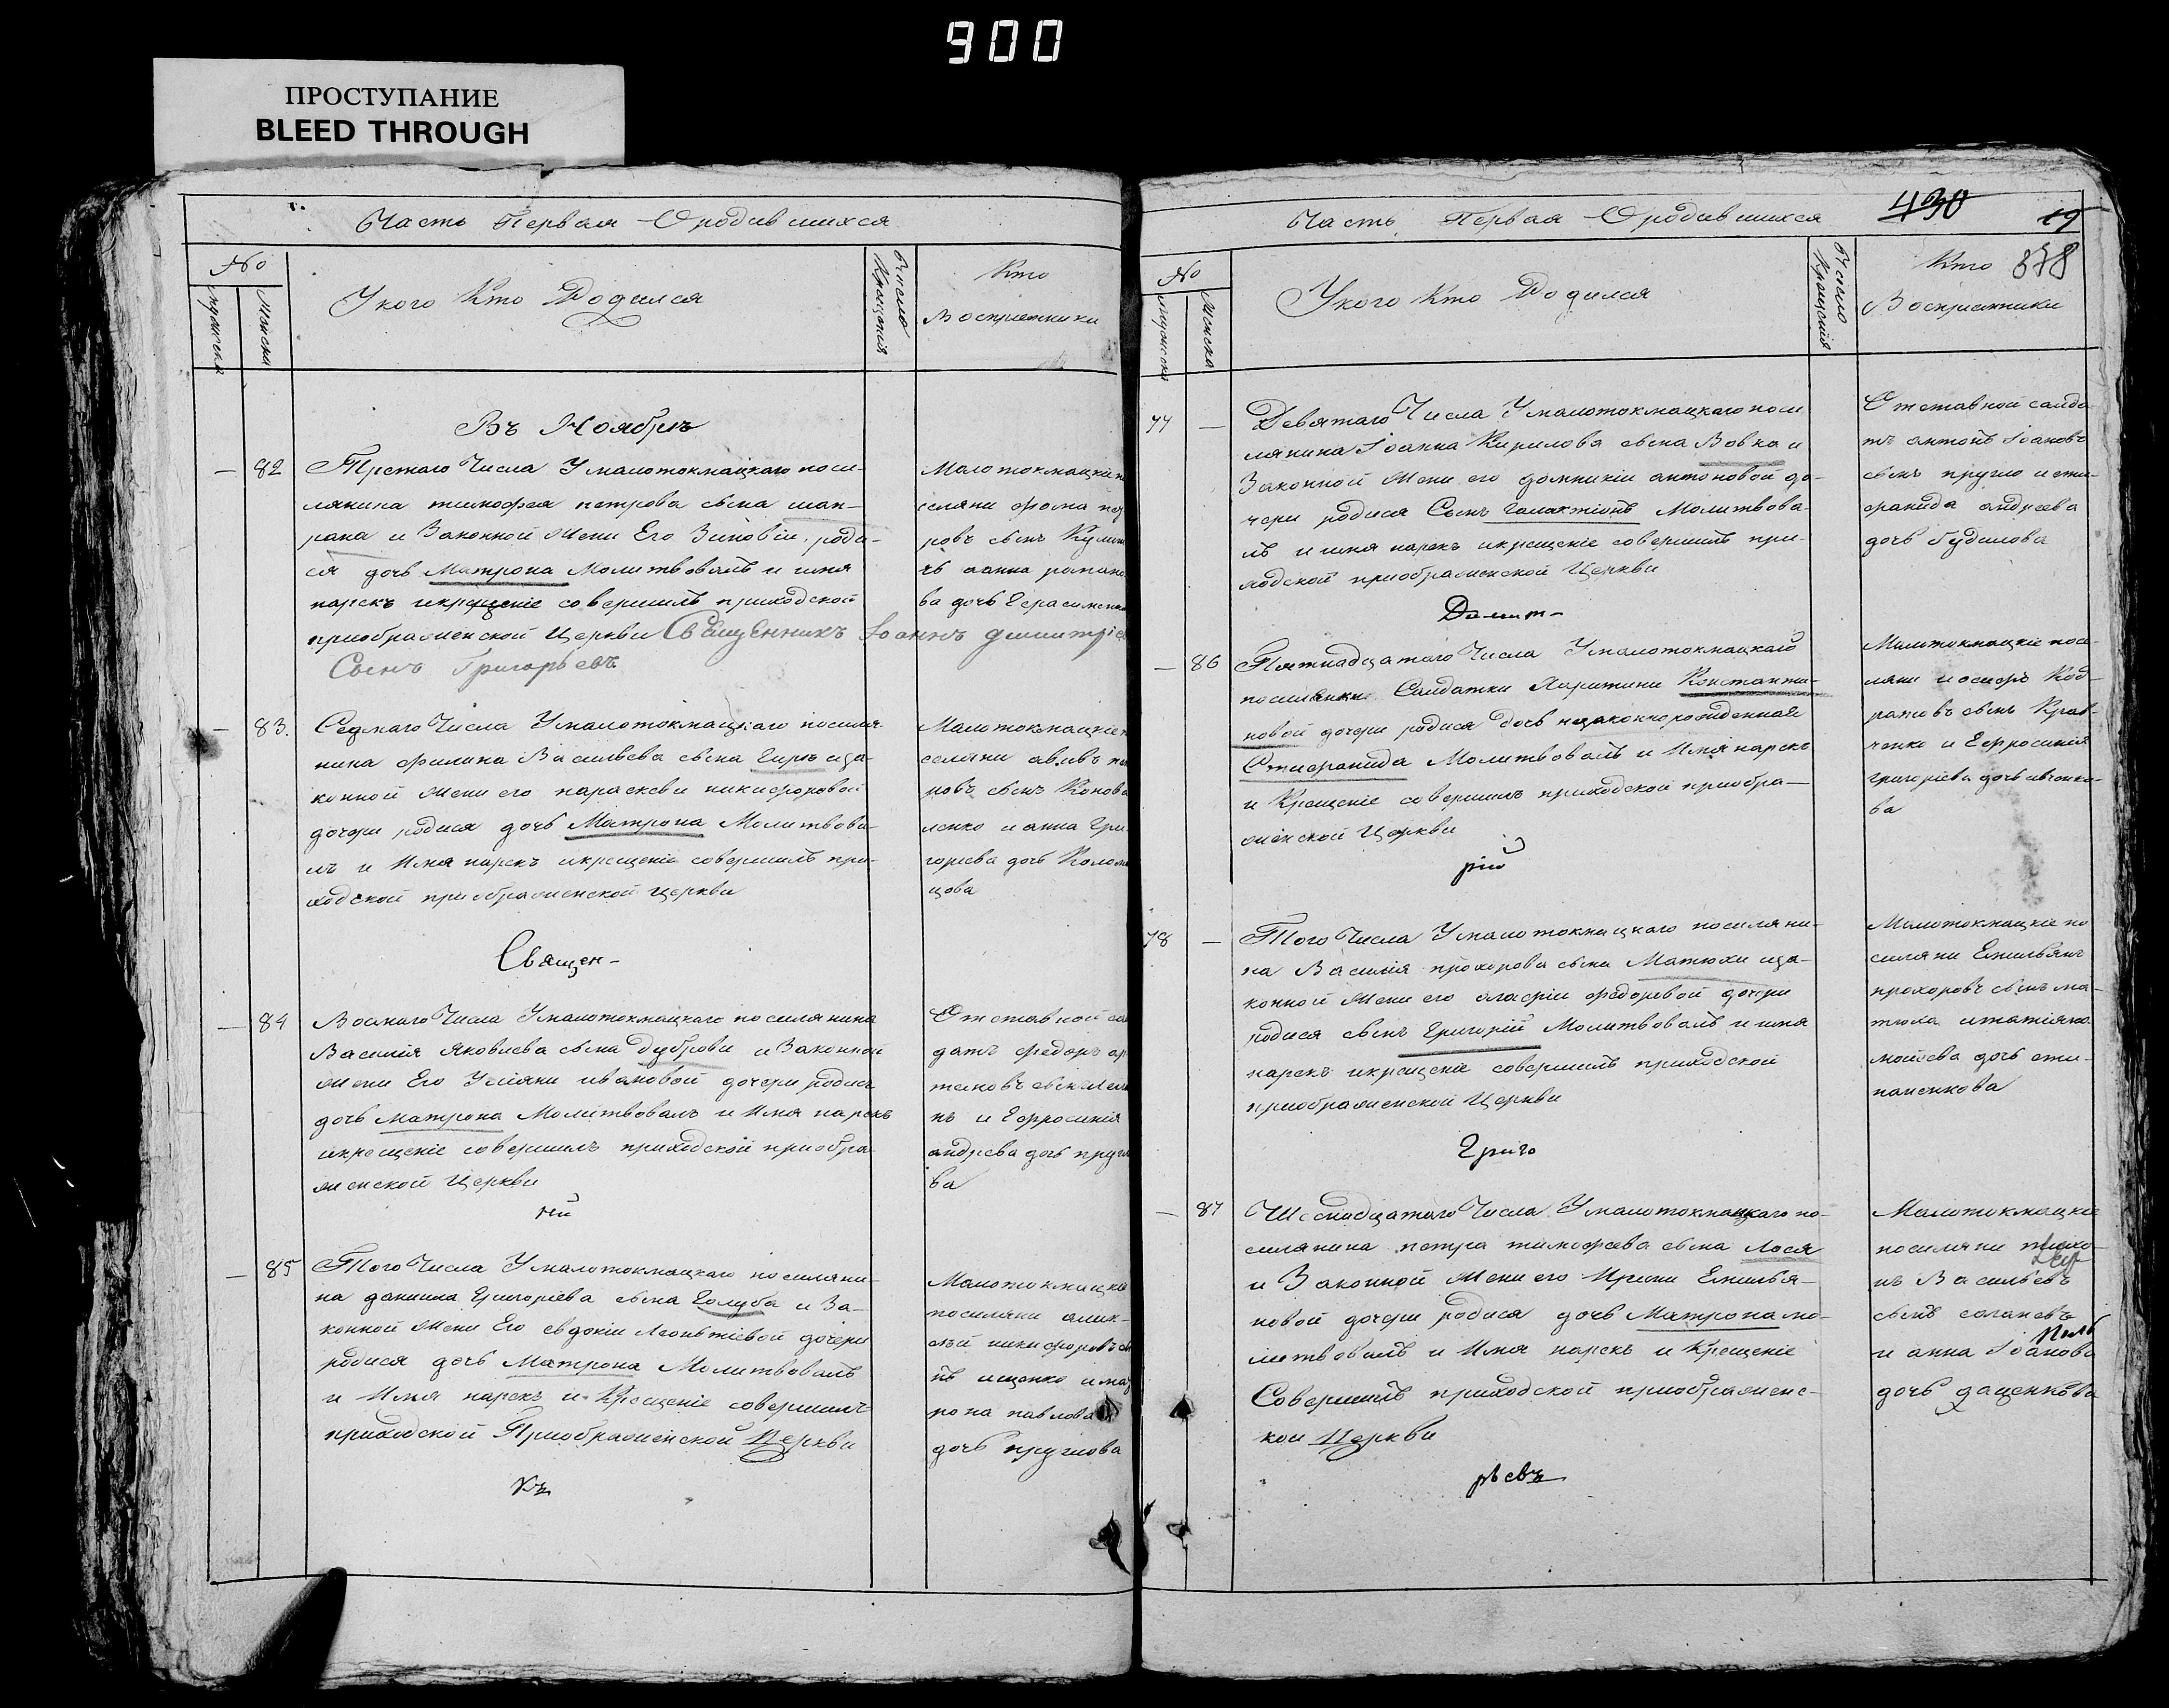 900
ПРОСТУПАНИЕ
BLEED THROUGH
Часть Первая О родившихся
№
Мужеска
Женска
У кого Кто Родился
Число Крещения
Кто
Восприемники
Въ Ноябрѣ
— 82
Третяго Числа У малотокмацкаго посе-
лянина тимофея петрова сына шап-
рана и Законной Жены Его Зиновіи роди-
ся дочь Матрона Молитвовалъ и имя
нарекъ икрещеніе совершилъ приходской
приображенской Церкви Священникъ Іоаннъ Димитріев
Сынъ Григорьевъ
Малотокмацкие по
селяни фома пет
ровъ сынъ
и анна романо
ва дочь Герасименко
— 83.
Седмаго Числа У малотокмацкаго поселя-
нина филипа Васильева сына иза-
конной Жены его параскеви никифоровой
дочери родися дочь Матрона Молитвова-
лъ и Имя нарекъ икрещеніе совершилъ при-
ходской приображенской церкви
Малотокмацкіе п
селяни
ровъ сынъ Конова
ленко и анна Гри
горіева дочь Колом
цова
Священ-
— 84
Восмаго Числа У малотокмацкаго поселянина
Василія Яковлева сына дуброви и Законной
Жены Его Уліяни ивановой дочери родися
дочь Матрона Молитвовалъ и Имя нарекъ
икрещеніе совершилъ приходской приобра-
женской Церкви
Отставной сал
датъ федоръ ар
темовъ сынъ
и Ефросинія
андреева дочь пругло
ва
ній
— 85
Того Числа У малотокмацкаго поселяни-
на даниила Григоріева сына Голуба и За-
конной Жены Его евдокіи Леонтіевой дочери
родися дочь Матрона Молитвовалъ
и Имя нарекъ и Крещеніе совершилъ
приходской Приображенской Церкви
Малотокмацкіе
поселяни алек-
сѣй никифоровъ сы
нъ ищенко и мат
рона павлова
дочь пруглова
къ
Часть Первая О родившихся
430
19
878
№
Мужеска
Женска
У кого Кто Родился
Число Крещения
Кто
Восприемники
77 —
Девятаго Числа У малотокмацкаго посе
лянина Іоанна Кирилова сына Вовка и
Законной Жены его домникіи антоновой до-
чери родися Сынъ Галактіонъ Молитвова-
лъ и имя нарекъ икрещеніе совершилъ при-
ходской приображенской Церкви
Отставной салда
тъ антонъ Іоановъ
сынъ пругло и сти-
фанида андреева
дочь Гудилова
Димит-
— 86
Пятнадцатаго Числа У малотокмацкаго
поселянки Салдатки Харитини Константи-
новой дочери родися дочь незаконнорожденная
Стифанида Молитвовалъ и Имя нарекъ
и Крещеніе совершилъ приходской приобра-
женской Церкви
Малотокмацкіе посе-
ляни иосифъ Код-
ратовъ сынъ Крав-
ченко и Ефросинія
григоріева дочь ивченко-
ва
рій
78 —
Того Числа У малотокмацкаго поселяни-
на Василія прохорова сына Матюхи иза-
конной Жены его гласфіи федоревой дочери
родися сынъ Григорій Молитвовалъ и имя
нарекъ икрещеніе совершилъ приходской
приображенской Церкви
Малотокмацкіе по
селяни Емельянъ
прохоровъ сынъ ма-
тюха итатіяна
моисѣева дочь сти-
паненкова
Григо
— 87
Шеснадцатаго Числа У малотокмацкаго по-
селянина петра тимофеева сына Лося
и Законной Жены его Ирини Емилья-
новой дочери родися дочь Матрона мо-
литвовалъ и Имя нарекъ и Крещеніе
Совершилъ приходской приображенс-
кои Церкви
Малотокмацкіе
поселяни
нъ Васильевъ
сынъ
и анна Іоанова
дочь даценкова
рьевъ